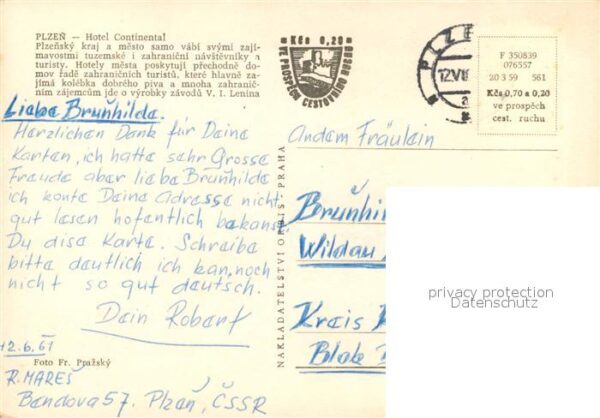 PLZEŇ — Hotel Continental
Plzeňský kraj a město samo vábí svými zají-
mavostmi tuzemské i zahraniční návštěvníky a
turisty. Hotely města poskytují přechodně do-
mov řadě zahraničních turistů, které hlavně za-
jímá kolébka dobrého piva a mnoha zahranič-
ním zájemcům jde o výrobky závodů V. I. Lenina
Kčs 0,20
VE PROSPĚCH CESTOVNÍHO RUCHU
PLZE
12.VI
a
F 350839
076557
20 3 59 561
Kčs 0,70 a 0,20
ve prospěch
cest. ruchu
Liebe Bruňhilde.
Herzlichen Dank für Deine
Karten, ich hatte sehr Grosse
Freude aber liebe Bruňhilde
ich konte Deine adresse nicht
gut lesen hofentlich bekomst
Du dise Karte. Schreibe
bitte deutlich ich kan noch
nicht so gut deutsch.
Dein Robert
12.6.61
Foto Fr. Pražský
R. MAREŠ
Bendova 57. Plzeň, ČSSR
NAKLADATELSTVÍ ORBIS - PRAHA
Andem Fräulein
Bruňhin
Wildau
Kreis K
Blok
privacy protection
Datenschutz